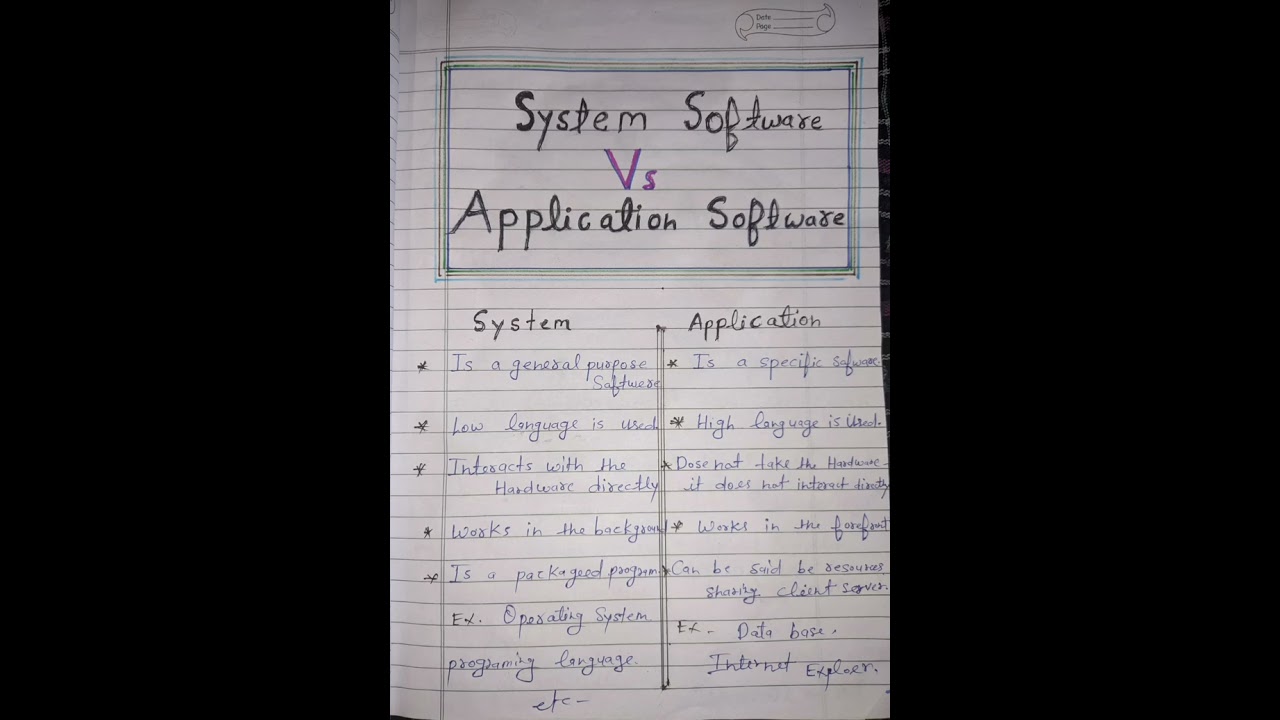 Date
Page
System Software
Vs
Application Software
System
Application
* Is a general purpose
Saftwere
* Is a specific Safware.
* Low language is used
* High language is Used.
* Interacts with the
Hardware directly
* Dose not take the Hardware-
it does not interact directly
* Works in the background
* Works in the forefront
* Is a packageed program.
* Can be said be resources
sharing client server.
Ex. Operating System
programing language.
etc-
Ex- Data base.
Internet Exploer.